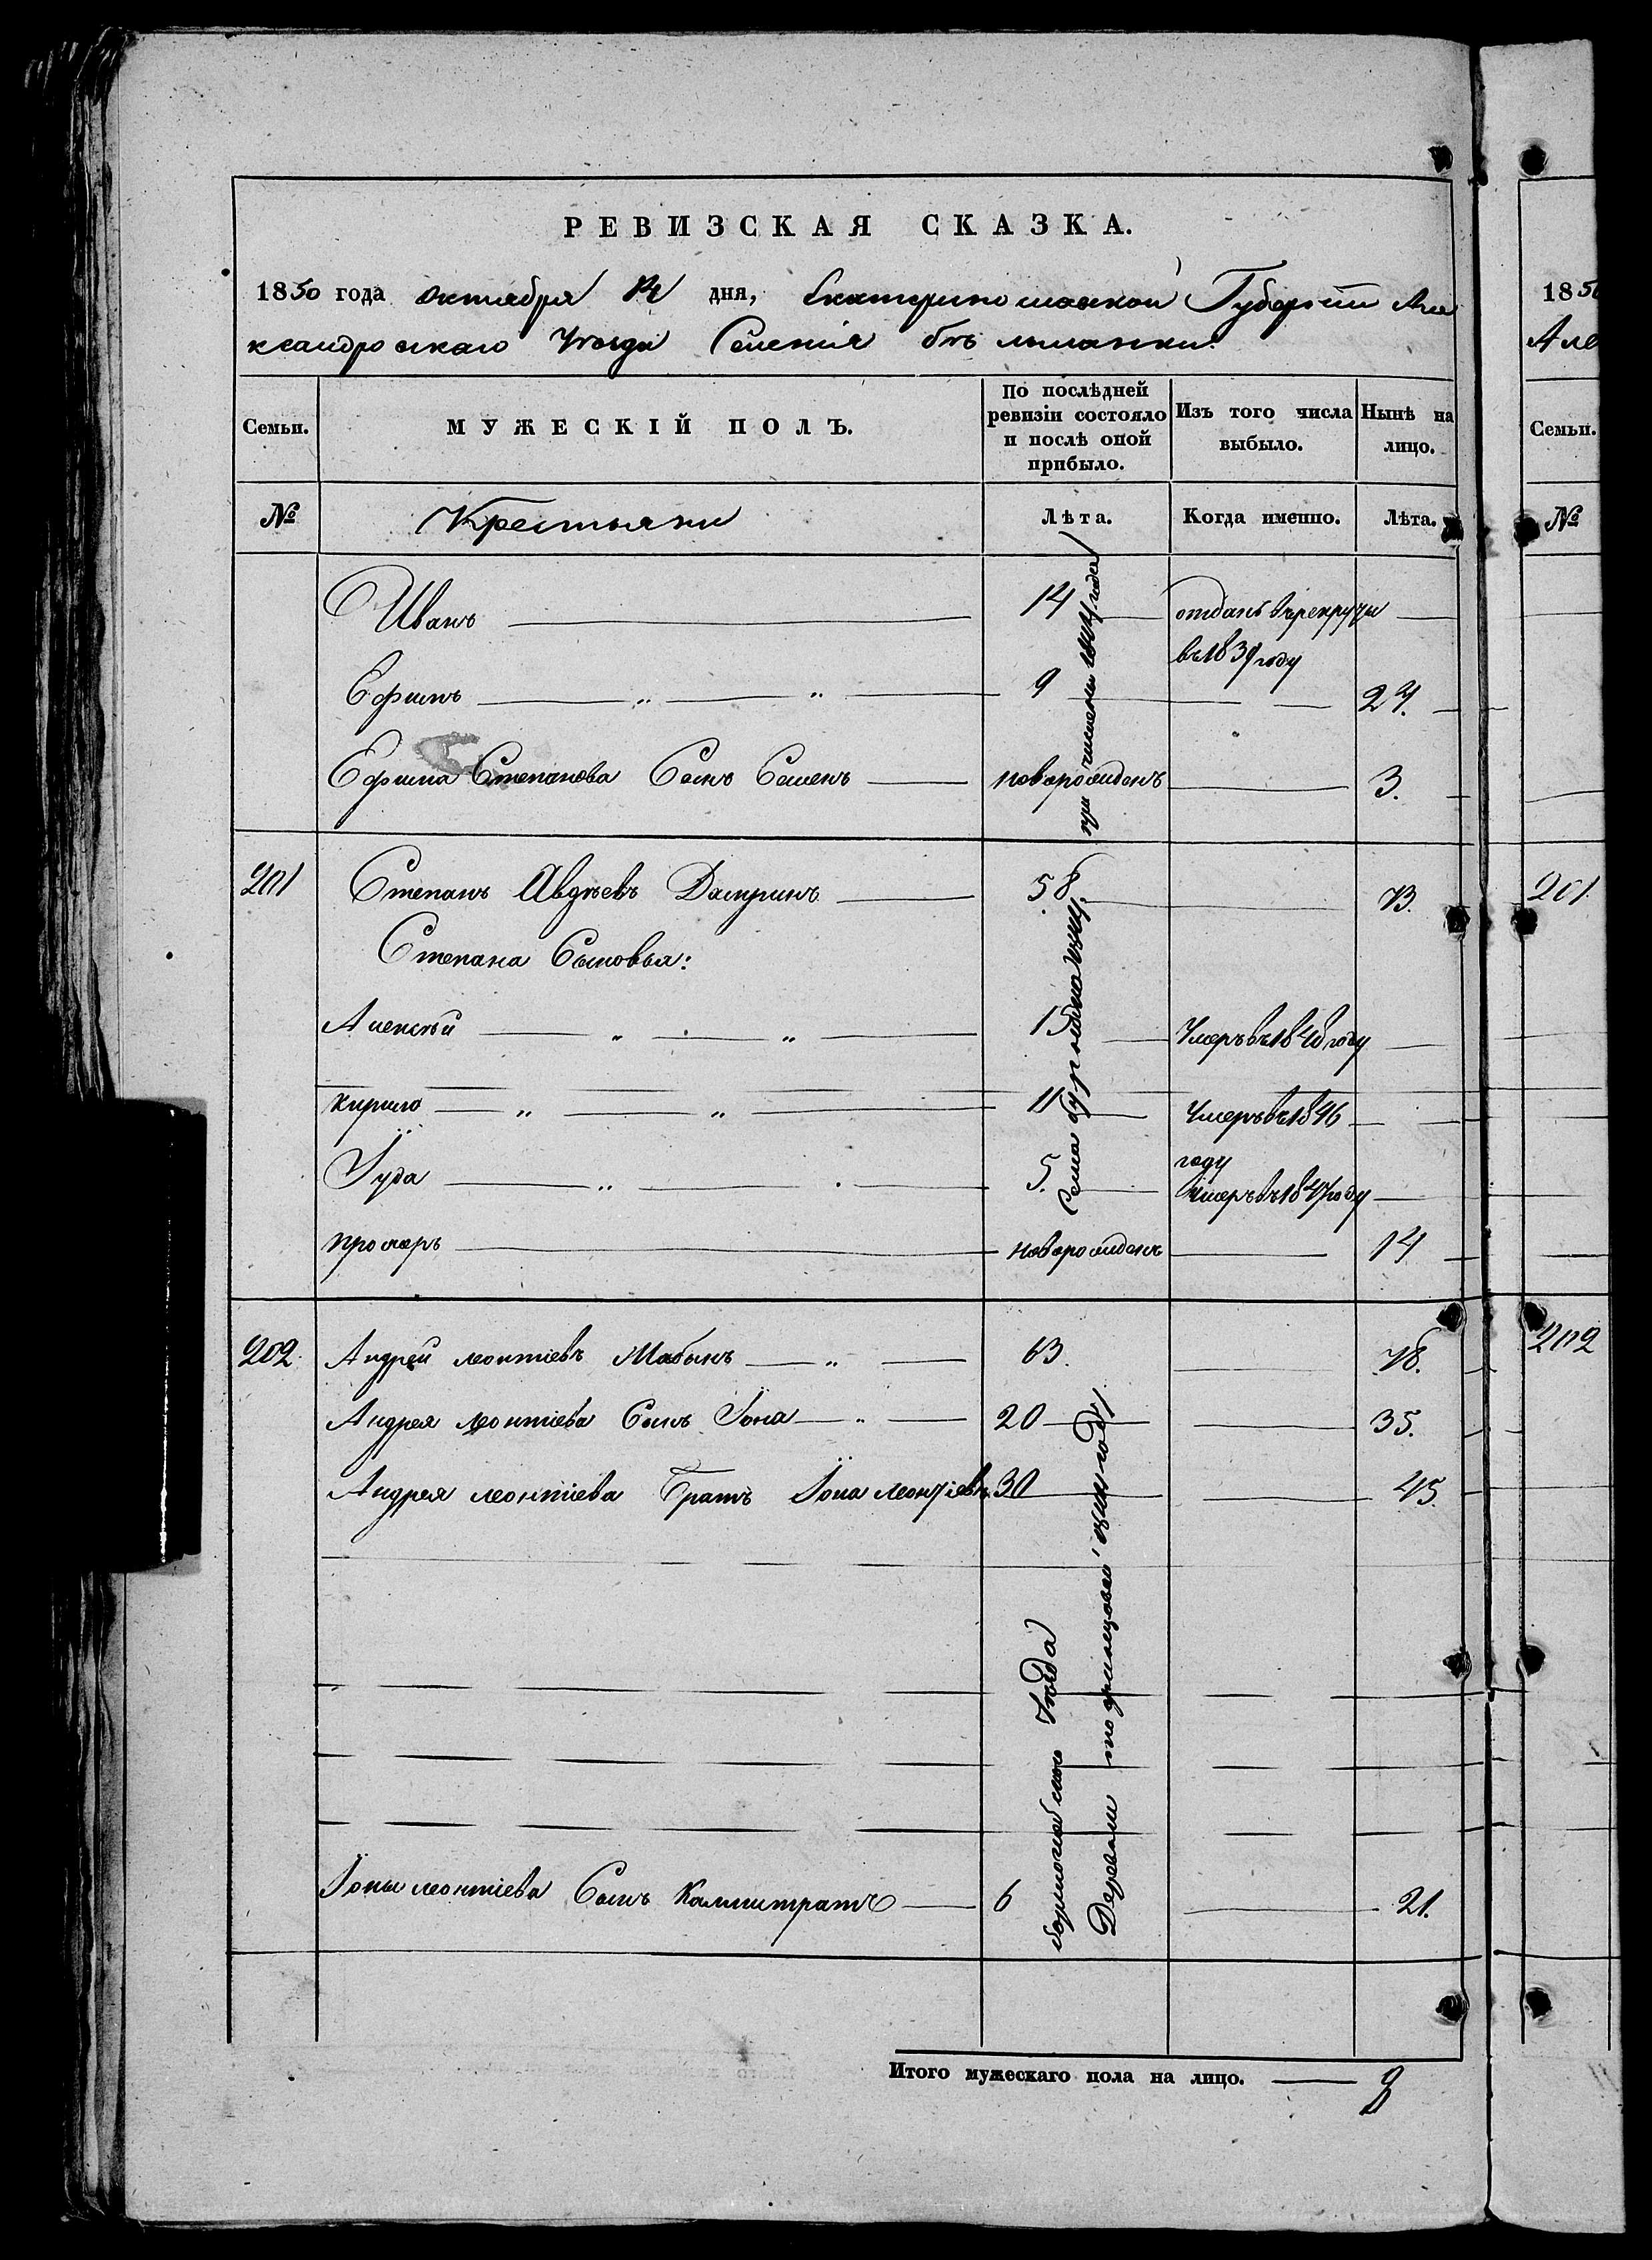 РЕВИЗСКАЯ СКАЗКА.
1850 года октября дня, Екатеринославской Губернии Але
ксандровскаго Уѣзда Селенія
Семьи. МУЖЕСКІЙ ПОЛЪ. По послѣдней ревизіи состояло и послѣ оной прибыло. Изъ того числа выбыло. Нынѣ на лицо.
№ Крестьяни Лѣта. Когда именно. Лѣта.
Иванъ 14 отданъ въ рекруты
въ 1839 году
Ефимъ 9 24.
Ефима Степанова Сынъ Семенъ новорожденъ 3.
201 Степанъ Авдѣевъ 58 73.
Степана Сыновья:
Алексѣй 15 Умеръ въ 1848 году
Кирило 11 Умеръ въ 1846
году
Іуда 5. Умеръ въ 1847 году
Прохоръ новорожденъ 14
202 Андрей Леонтіевъ 63. 78.
Андрея Леонтіева Сынъ Іона 20 35.
Андрея Леонтіева Братъ Іона Леонтіевъ 30 45.
Іоны Леонтіева Сынъ Каллистратъ 6 21.
Уѣзда
Деревни
Итого мужескаго пола на лицо. 8
1850
Але
Семьи.
№
201
202